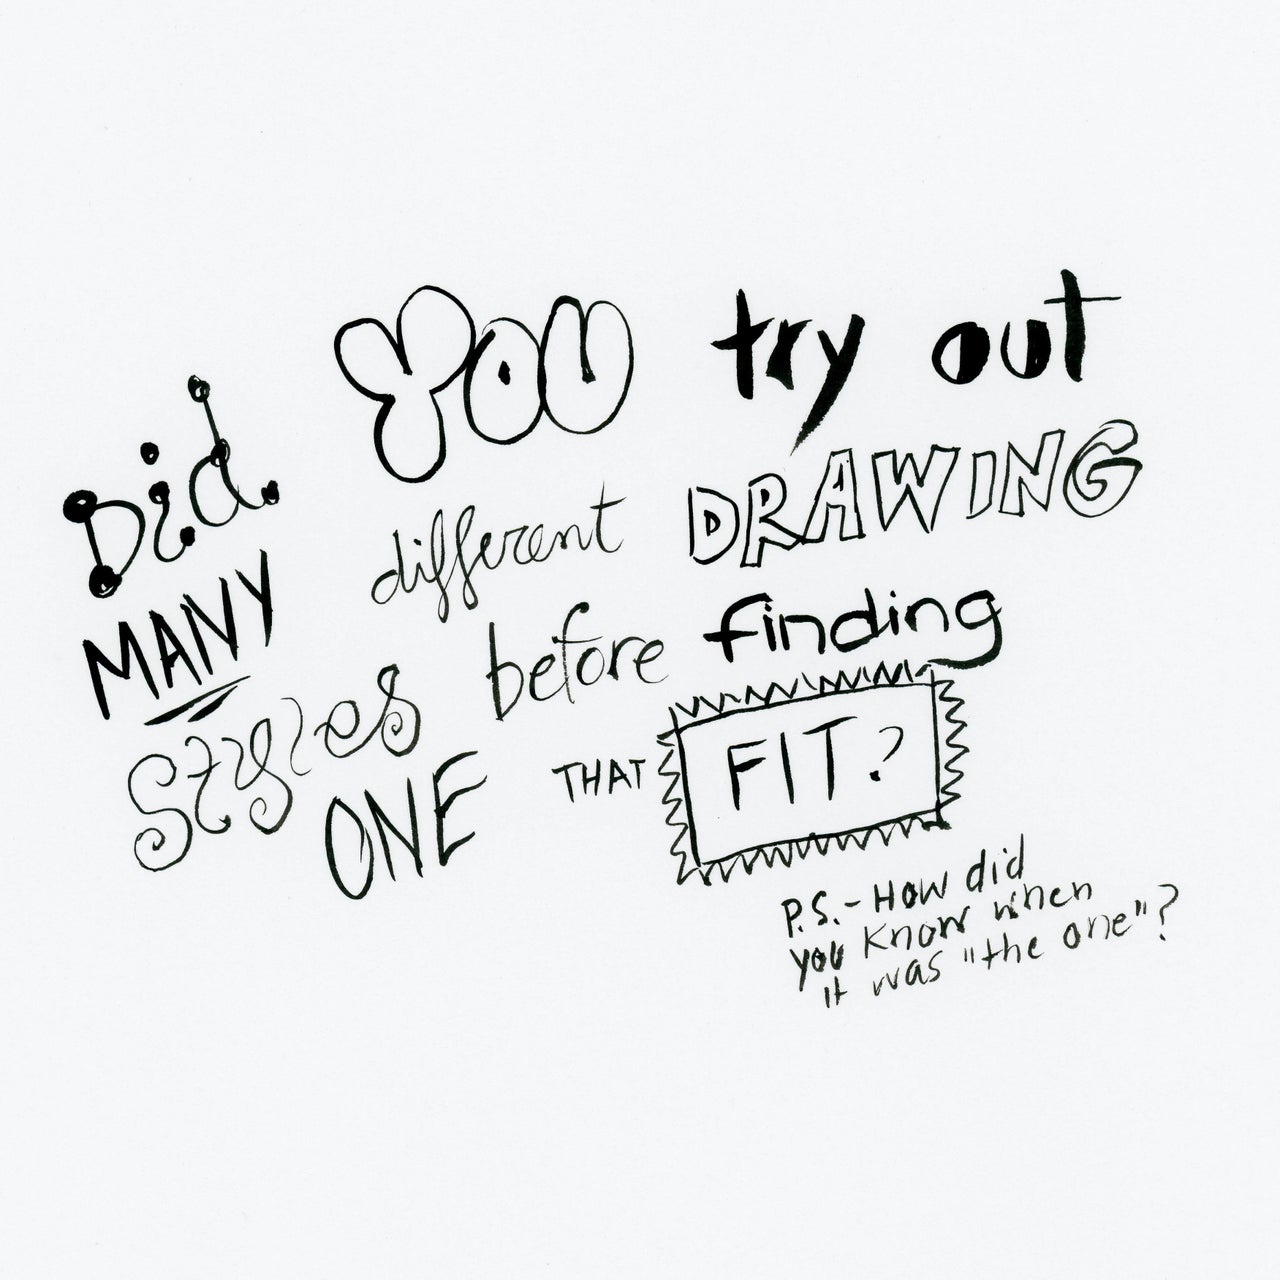 Did YOU try out
MANY different DRAWING
styles before finding
ONE THAT FIT?
P.S. - How did
you know when
it was "the one"?